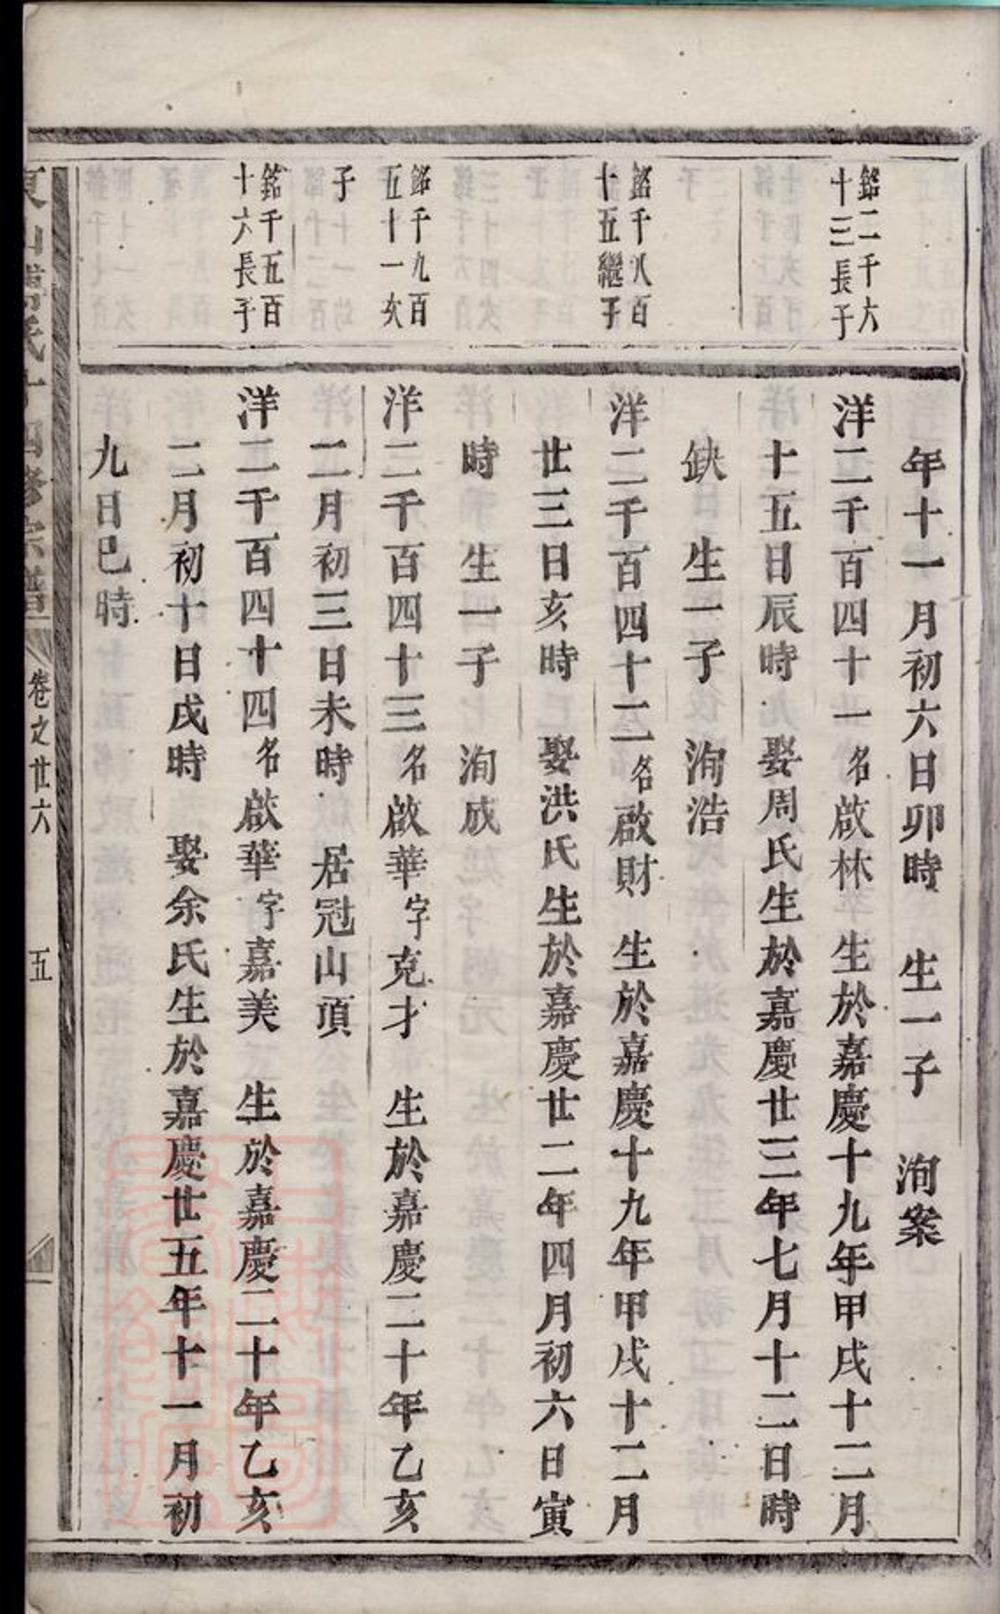 年十一月初六日卯時　生一子　洵案
銘二千六
十三長子
洋二千百四十一名啟林　生於嘉慶十九年甲戌十二月
十五日辰時　娶周氏生於嘉慶廿三年七月十二日時
缺　生一子　洵浩
銘千八百
十五繼子
洋二千百四十二名啟財　生於嘉慶十九年甲戌十二月
廿三日亥時　娶洪氏生於嘉慶廿二年四月初六日寅
時　生一子　洵成
銘千九百
五十一次
子
洋二千百四十三名啟華字克才　生於嘉慶二十年乙亥
二月初三日未時　居冠山頂
銘千五百
十六長子
洋二千百四十四名啟華字嘉美　生於嘉慶二十年乙亥
二月初十日戌時　娶余氏生於嘉慶廿五年十一月初
九日巳時
氏十四修宗譜
卷之廿六
五